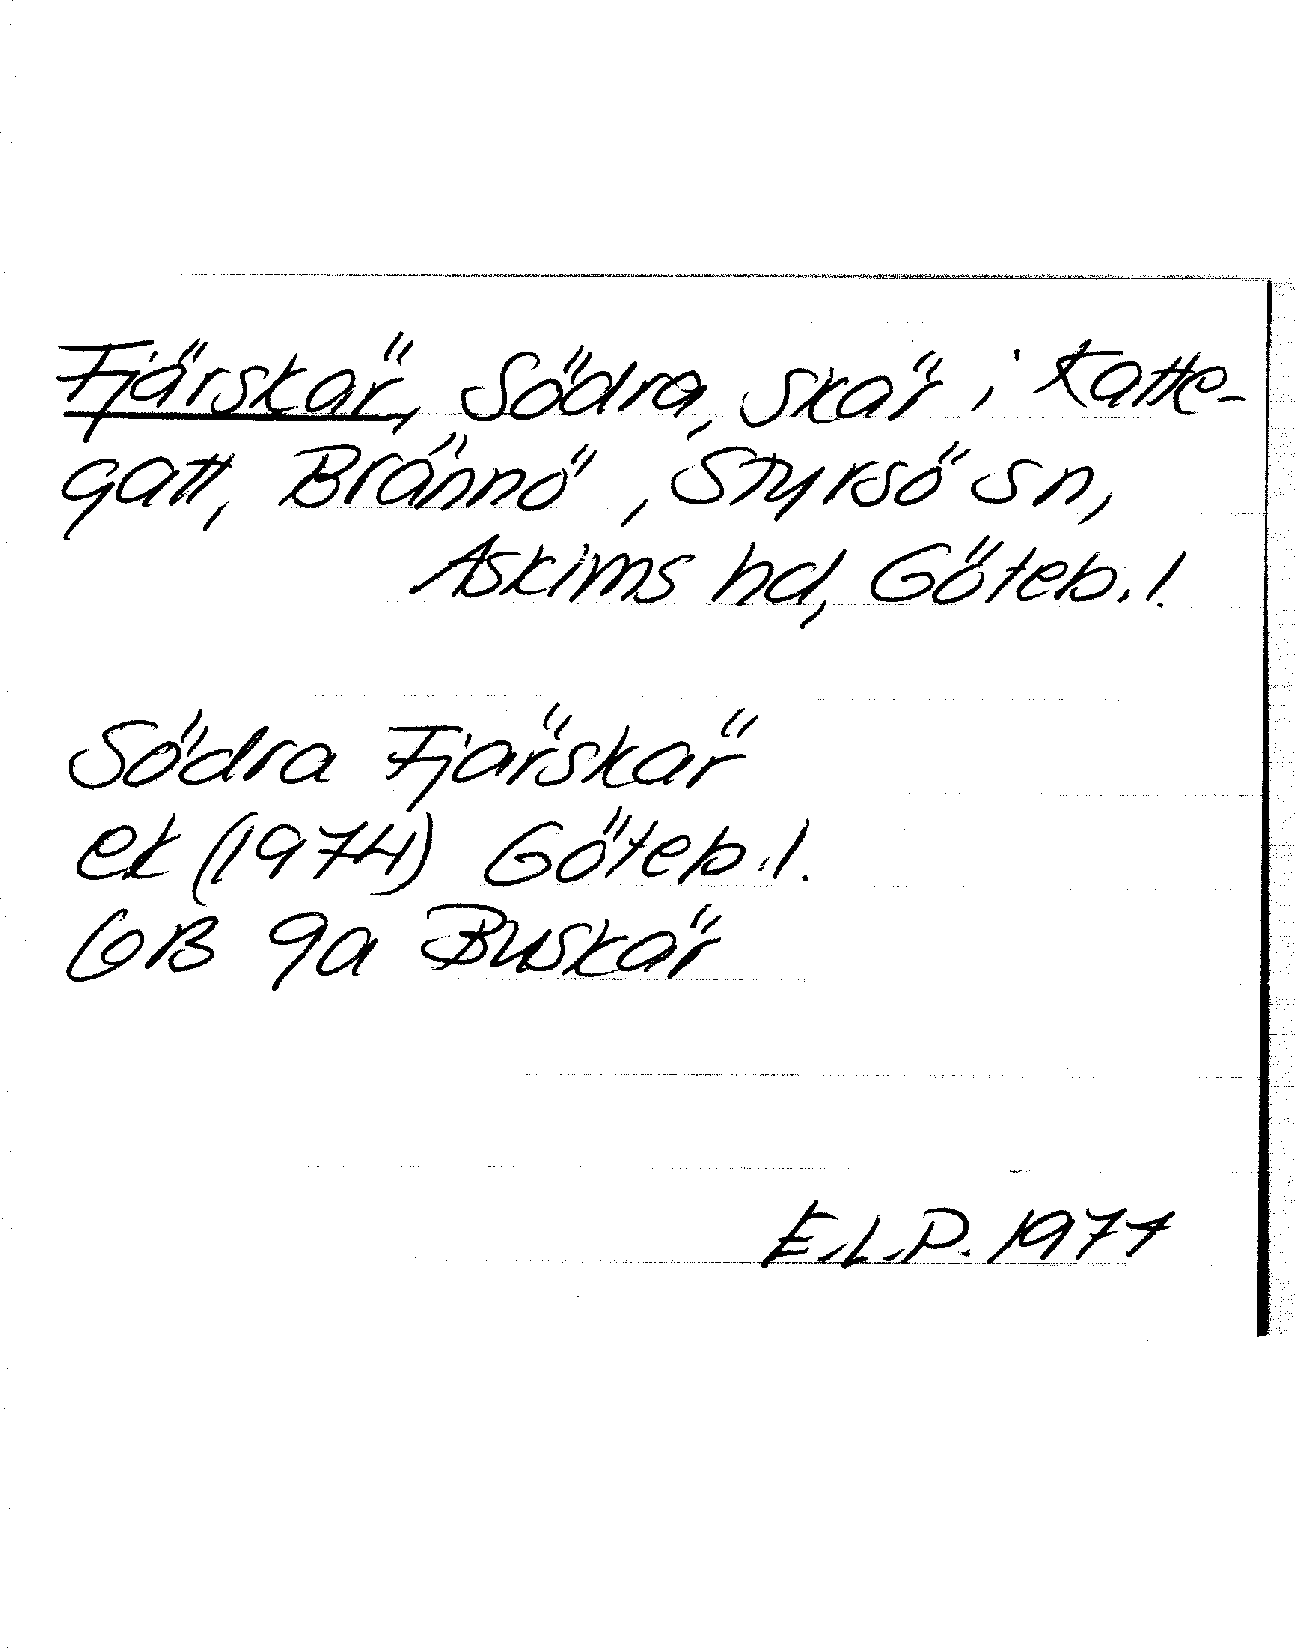 Fjärskär, Södra, skär i Katte-
gatt, Brännö, Styrsö sn,
Askims hd, Göteb. l.
Södra Fjärskär
ek (1974) Göteb. l.
GB 9a Buskär
E.L.P. 1974